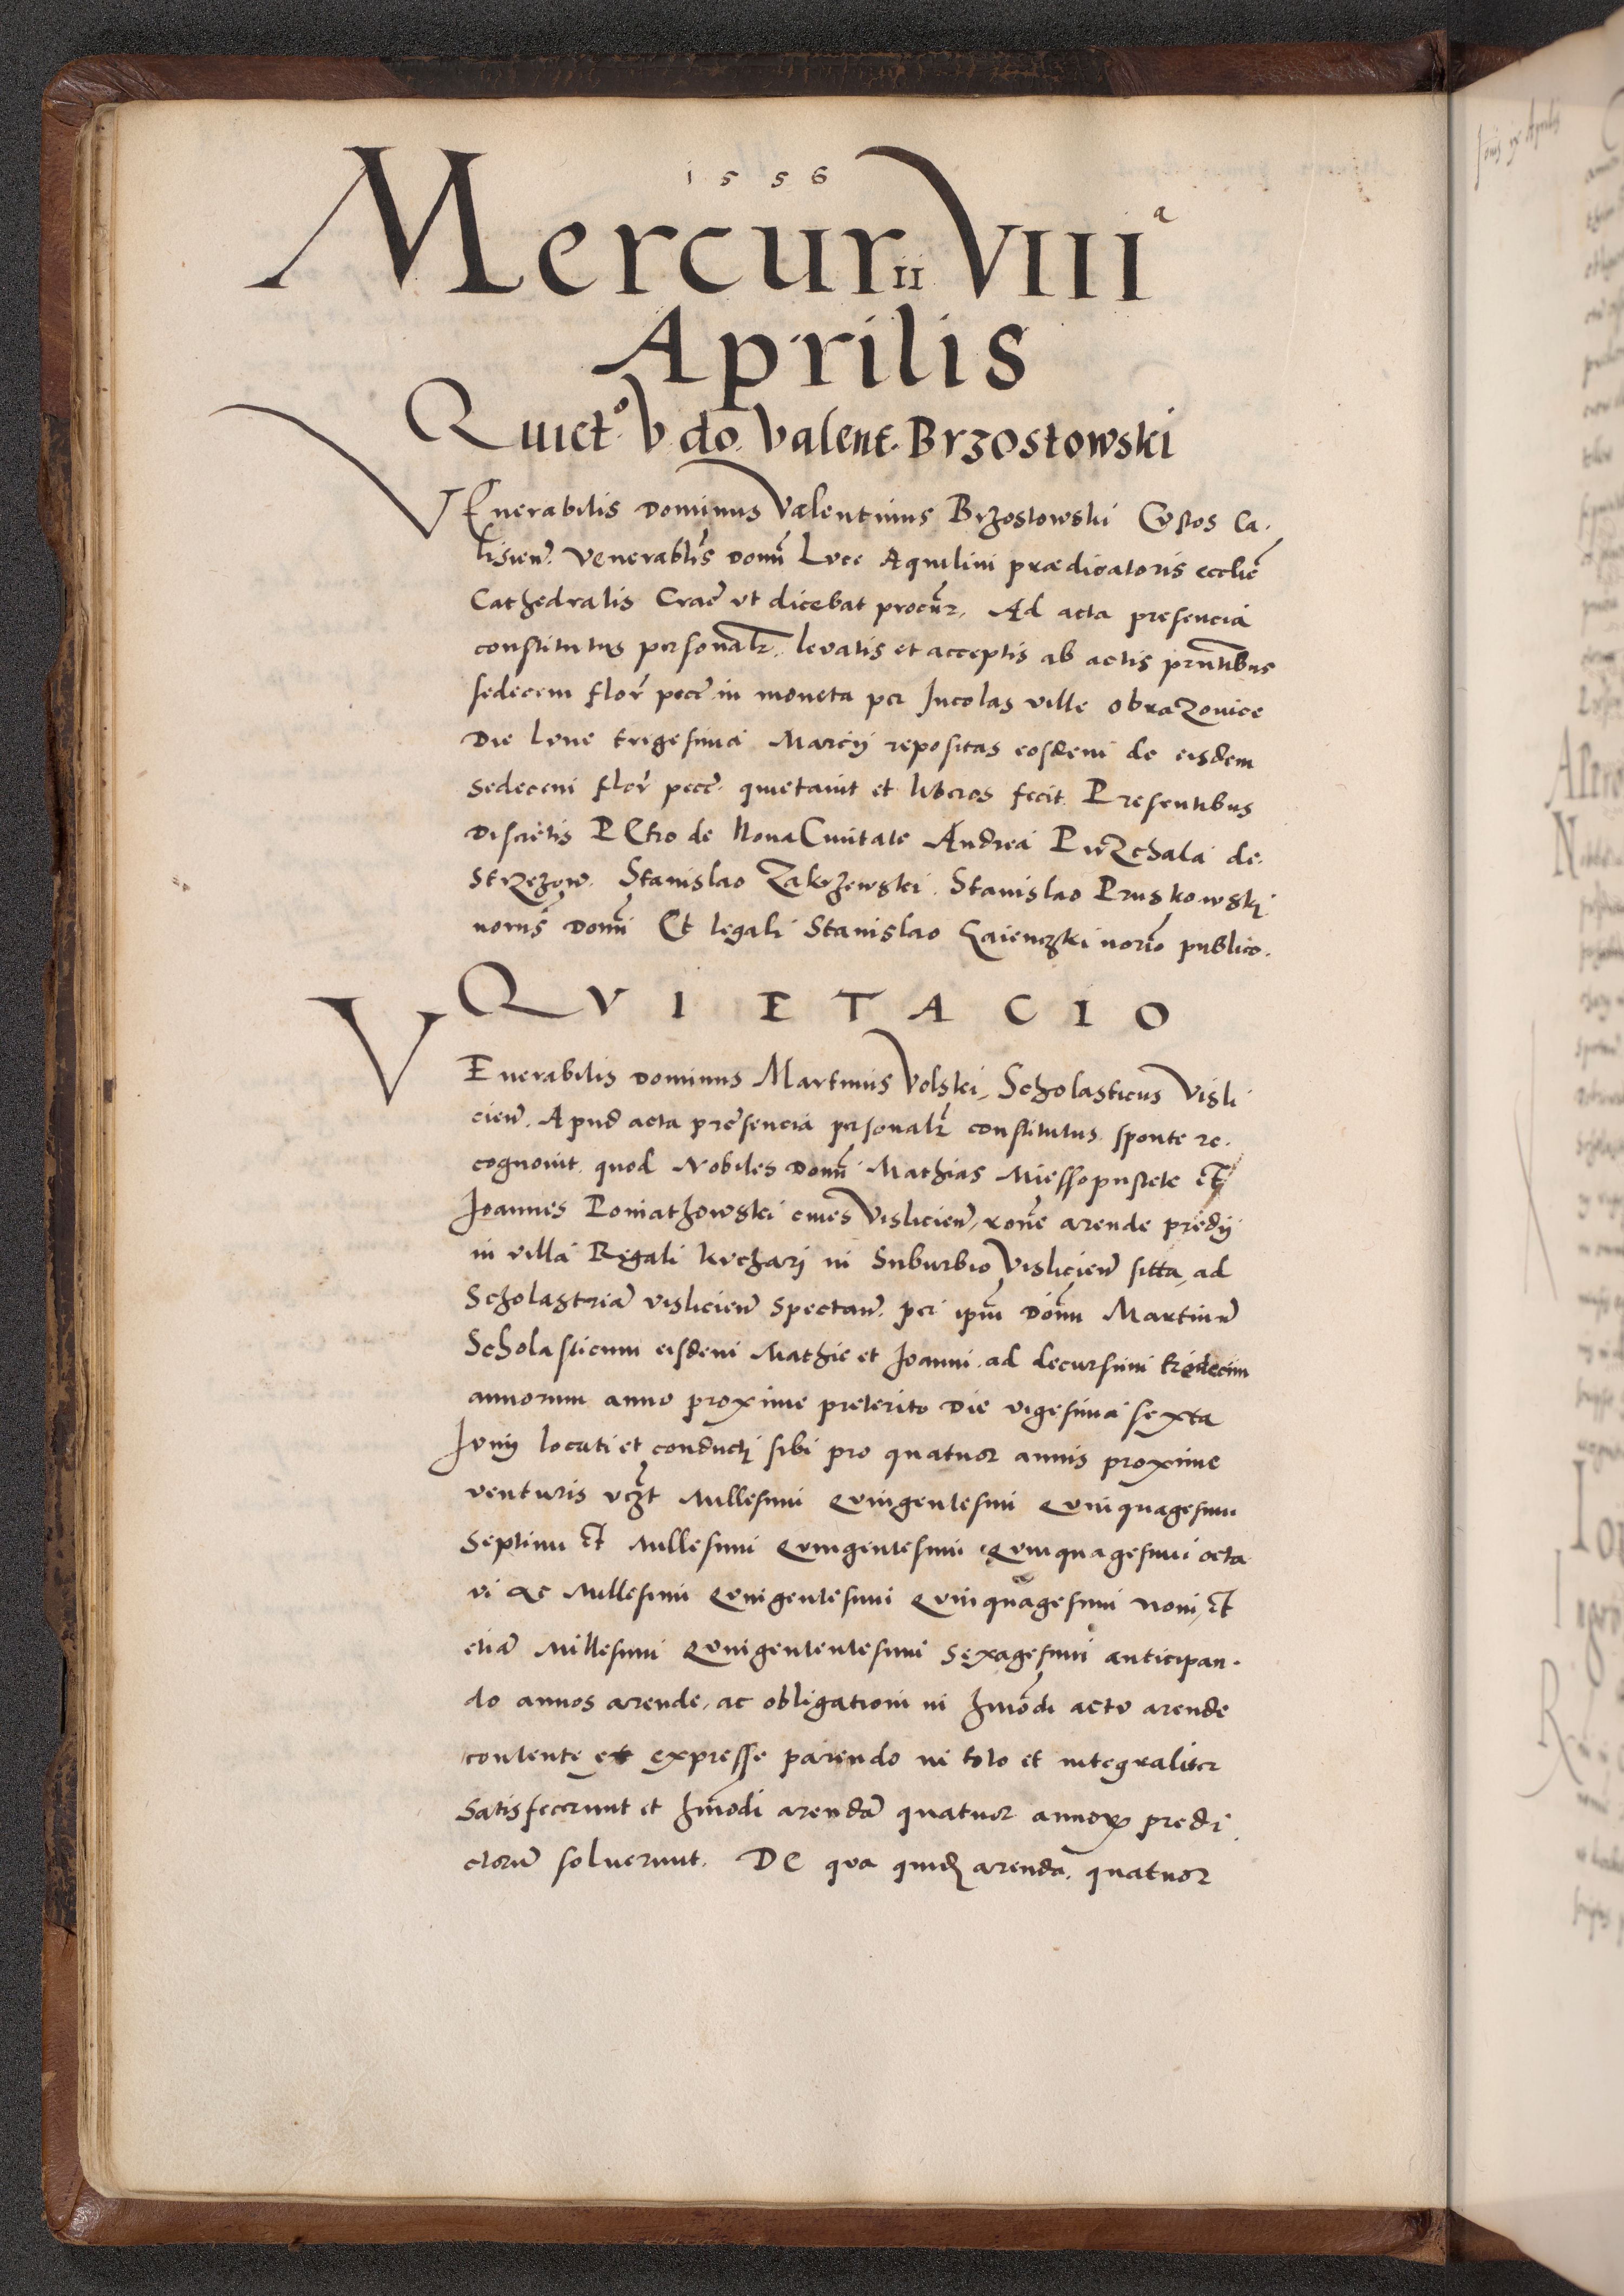 1556
Mercurii VIIIª
Aprilis
Quict.º V. do. Valent. Brzostowski
VEnerabilis Dominus Valentinus Brzostowski Custos Ca.
lisien̄. Venerabl̄is Domn̄ Luce Aquilini prædicatoris eccliē
Cathedralis Crac̄ ut dicebat procūr. Ad acta presencia
constitutus personalr̄. levatis et acceptis ab actis prn̄tibus
sedecem flor̄ pecc̄ in moneta per Incolas ville Obrazovice
Die Lune trigesima Marcij repositas eosdem de eisdem
sedecem flor̄ pecc̄. quietavit et liberos fecit. Presentibus
Discretis PEtro de Nova Civitate Andrea Pirzchala de.
Strzezow. Stanislao Zakrzewski. Stanislao Pruskowski
noriis Domn̄i Et legali Stanislao Zaienczki norīo publico.
QVIETACIO
VEnerabilis Dominus Martinus Volski, Scholasticus Visli
cien̄. Apud acta presencia personalr̄ constitutus sponte re.
cognovit. quod Nobiles Domn̄ Mathias Miessopustete Et
Joannes Poniathowski cives Vislicien̄, ron̄e arende predij
in villa Regali Kuchary in Suburbio Vislicien̄ sitta, ad
Scholastriā vislicien̄ spectan̄. per ipm̄ Domn̄ Martinū
Scholasticum eisdem Mathie et Joanni ad decursum tredecim
annorum anno proxime preterito Die vigesima sexta
Junij locati et conducti sibi pro quatuor annis proxime
venturis vcz̄t Millesimi Quingentesimi Quinquagesimi
Septimi Et Millesimi Quingentesimi Quinquagesimi octa
vi Ac Millesimi Quingentesimi Quinquagesimi noni, Et
etiā Millesimi Quingententesimi Sexagesimi anticipan.
do annos arende, ac obligationi in hmōdi actu arende
contente et expresse parendo in toto et integraliter
Satisfecerunt et hmōdi arendā quatuor annorꝝ predi
ctorū solverunt. DE qua quidē arenda. quatuor